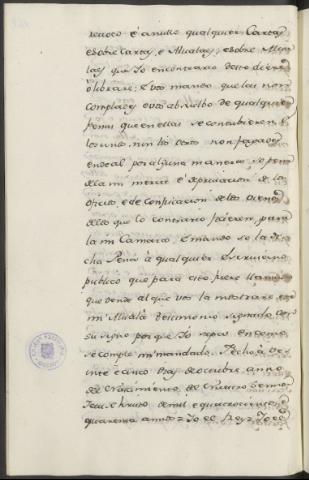 revoco é anullo qualquier Cartas
é sobre Cartas, é Alvalaes, é sobre Alva
laes que Yo en contrario desto diere
ó librare; é vos mando que las non
complades é vos absuelbo de qualquier
penas que en ellas se contubieren é
los unos, nin los otros non fagades
ende al por alguna manera, so pena
de la mi merced é de privacion de los
oficios, é de Confiscacion de los bienes
de los que lo contrario ficieren, para
la mi Camara; é mando so la di
cha Pena á qualquier Escrivano
publico que para esto fuere llamado
que dende al que vos la mostrare
mi Alvalá testimonio signado con
su signo por que Yo sepa en como
se comple mi mandado. Fecho á ve
inte é cinco dias de octubre, anno
del Nascimiento de Nuestro Sennor
Jesu Christo de mil é quatrocientos
quarenta annos = Yo el Rey = Yo el